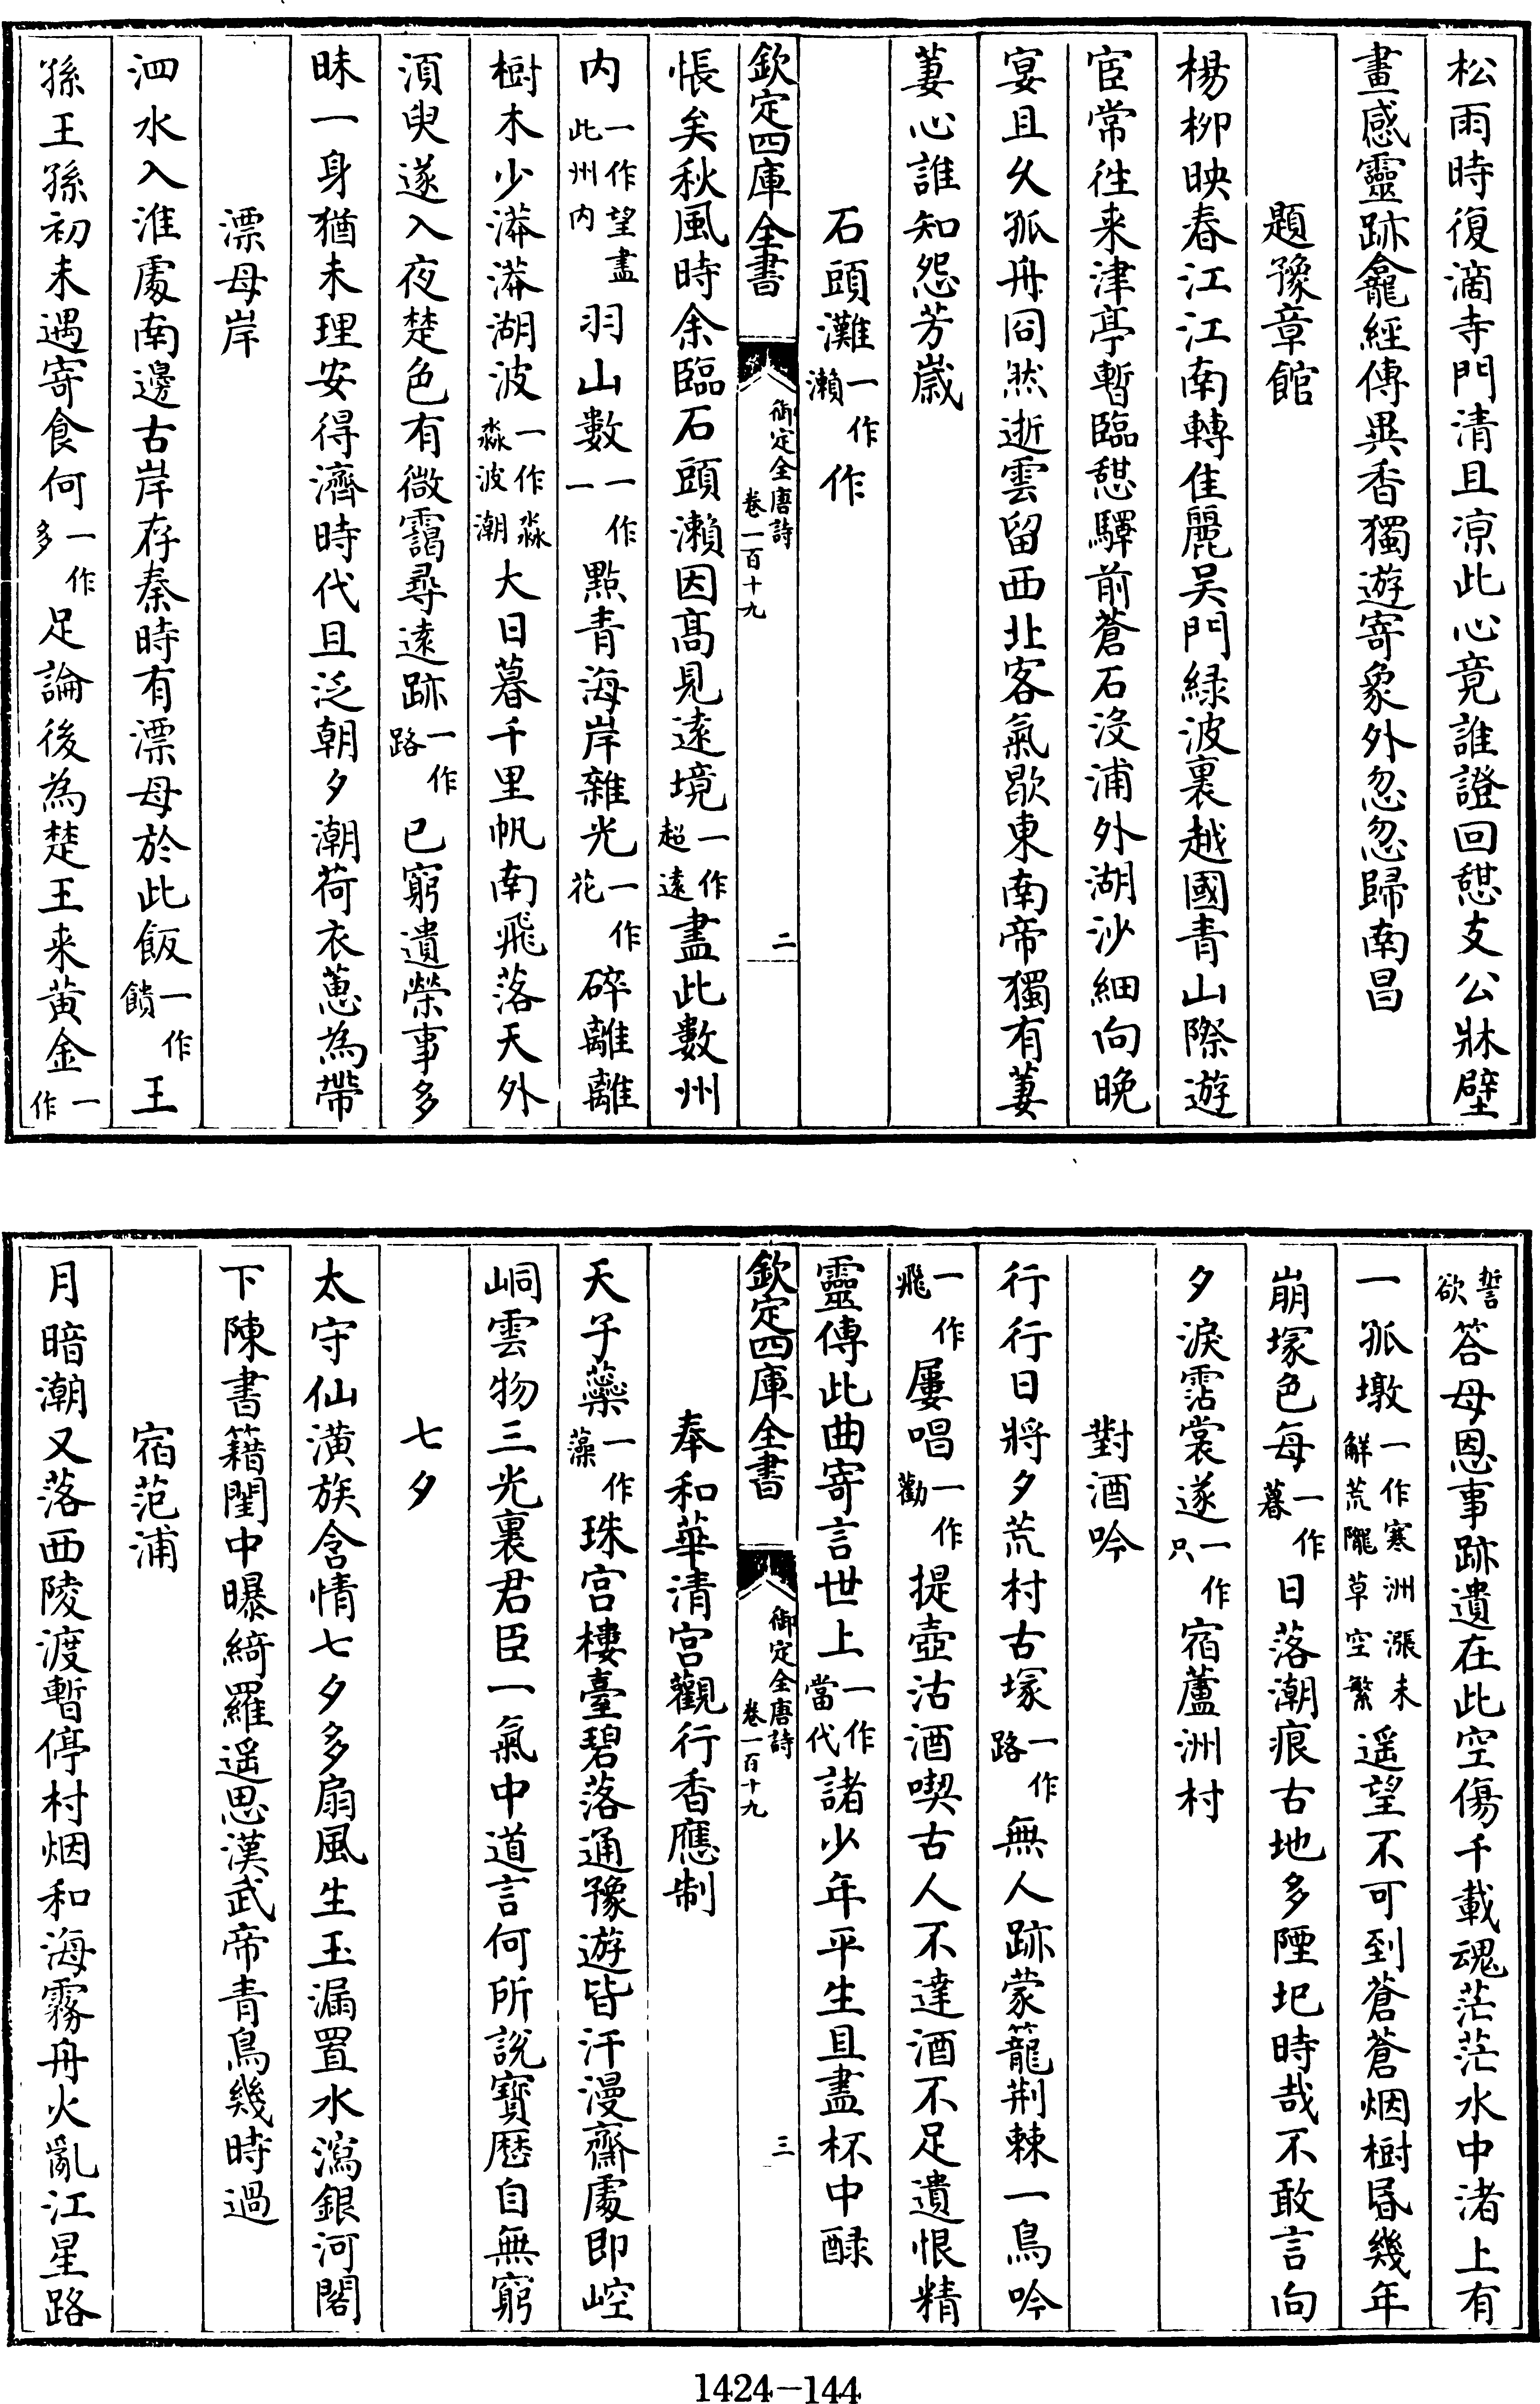 松雨時復滴寺門清且凉此心竟誰證回憇支公牀壁
畫感靈跡龕經傳異香獨遊寄象外忽忽歸南昌
題豫章館
楊栁映春江江南轉佳麗吳門緑波裏越國青山際遊
宦常徃来津亭暫臨憇驛前蒼石没浦外湖沙細向晚
宴且久孤舟冏然逝雲留西北客氣歇東南帝獨有萋
萋心誰知怨芳嵗
石頭灘一作瀨作
欽定四庫全書 御定全唐詩卷一百十九 二
悵矣秋風時余臨石頭瀨因髙見逺境一作超逺盡此數州
内一作望盡此州内羽山數一作一點青海岸雜光一作花碎離離
樹木少漭漭湖波一作淼淼波潮大日暮千里帆南飛落天外
湏臾遂入夜楚色有微靄尋逺跡一作路已窮遺榮事多
昧一身猶未理安得濟時代且泛朝夕潮荷衣蕙為帶
漂母岸
泗水入淮處南邊古岸存秦時有漂母於此飯一作饋王
孫王孫初未遇寄食何一作多足論後為楚王来黄金一作
誓欲答母恩事跡遺在此空傷千載魂茫茫水中渚上有
一孤墩一作寒洲漲未解荒隴草空繁遥望不可到蒼蒼烟樹昬幾年
崩塚色每一作暮日落潮痕古地多陻圯時哉不敢言向
夕淚霑裳遂一作只宿蘆洲村
對酒吟
行行日將夕荒村古塚一作路無人跡蒙籠荆棘一鳥吟
一作飛屢唱一作勸提壺沽酒喫古人不達酒不足遺恨精
靈傳此曲寄言世上一作當代諸少年平生且盡杯中醁
欽定四庫全書 御定全唐詩卷一百十九 三
奉和華清宫觀行香應制
天子蘂一作藻珠宫樓臺碧落通豫遊皆汗漫齋處即崆
峒雲物三光裏君臣一氣中道言何所說寳厯自無窮
七夕
太守仙潢族含情七夕多扇風生玉漏置水瀉銀河閣
下陳書籍閨中曝綺羅遥思漢武帝青鳥幾時過
宿范浦
月暗潮又落西陵渡暫停村烟和海霧舟火亂江星路
1424-144